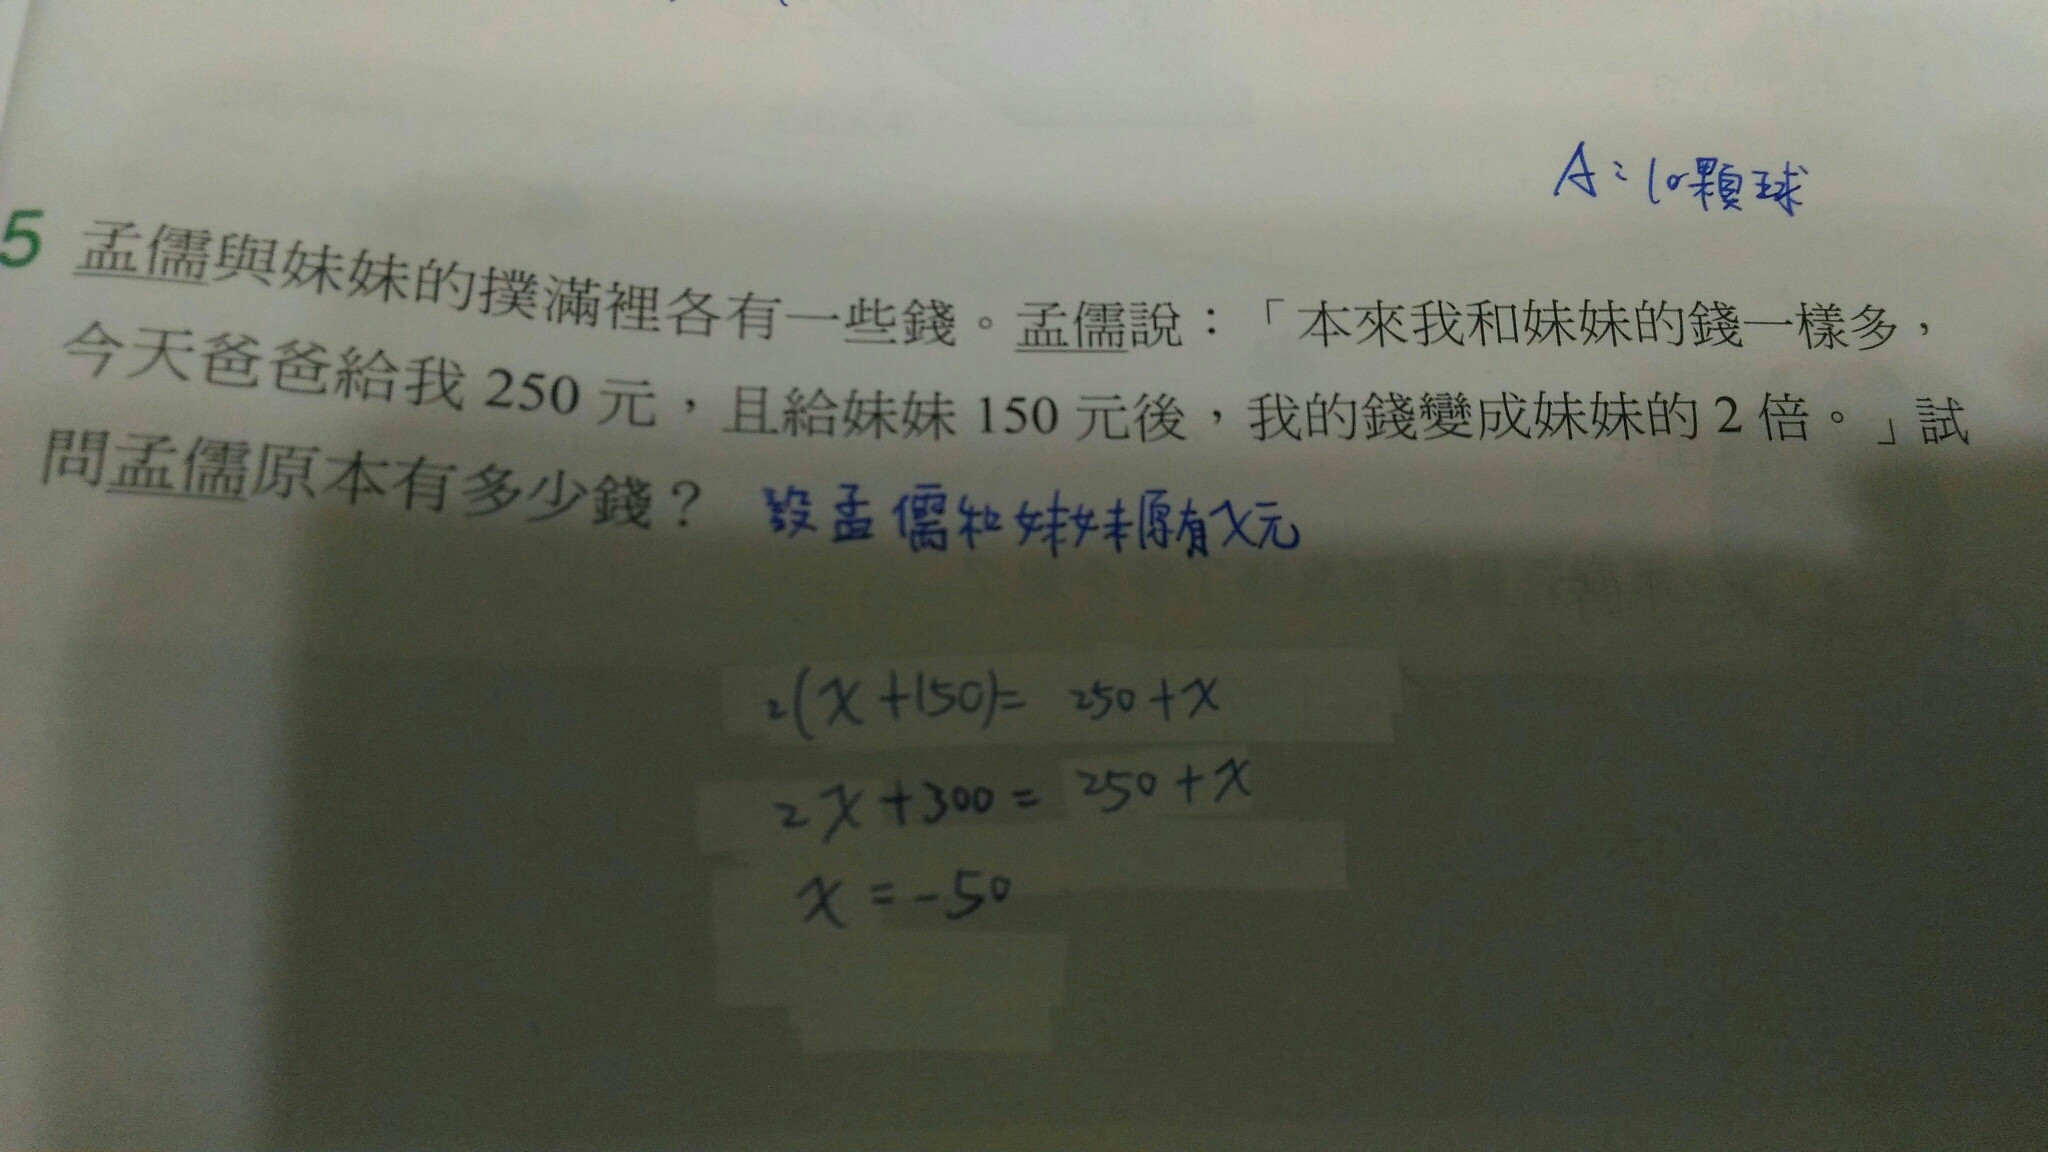 A：10顆球
5 孟儒與妹妹的撲滿裡各有一些錢。孟儒說：「本來我和妹妹的錢一樣多，
今天爸爸給我 250 元，且給妹妹 150 元後，我的錢變成妹妹的 2 倍。」試
問孟儒原本有多少錢？ 設孟儒和妹妹原有x元
2(x+150)= 250+x
2x+300= 250+x
x=-50